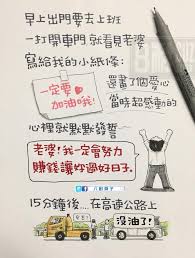 早上出門要去上班
一打開車門就看見老婆
寫給我的小紙條:
一定要
加油哦!
還畫了個愛心
當時超感動的
心裡就默默發誓~
老婆!我一定會努力
賺錢讓妳過好日子.
15分鐘後....在高速公路上
沒油了!